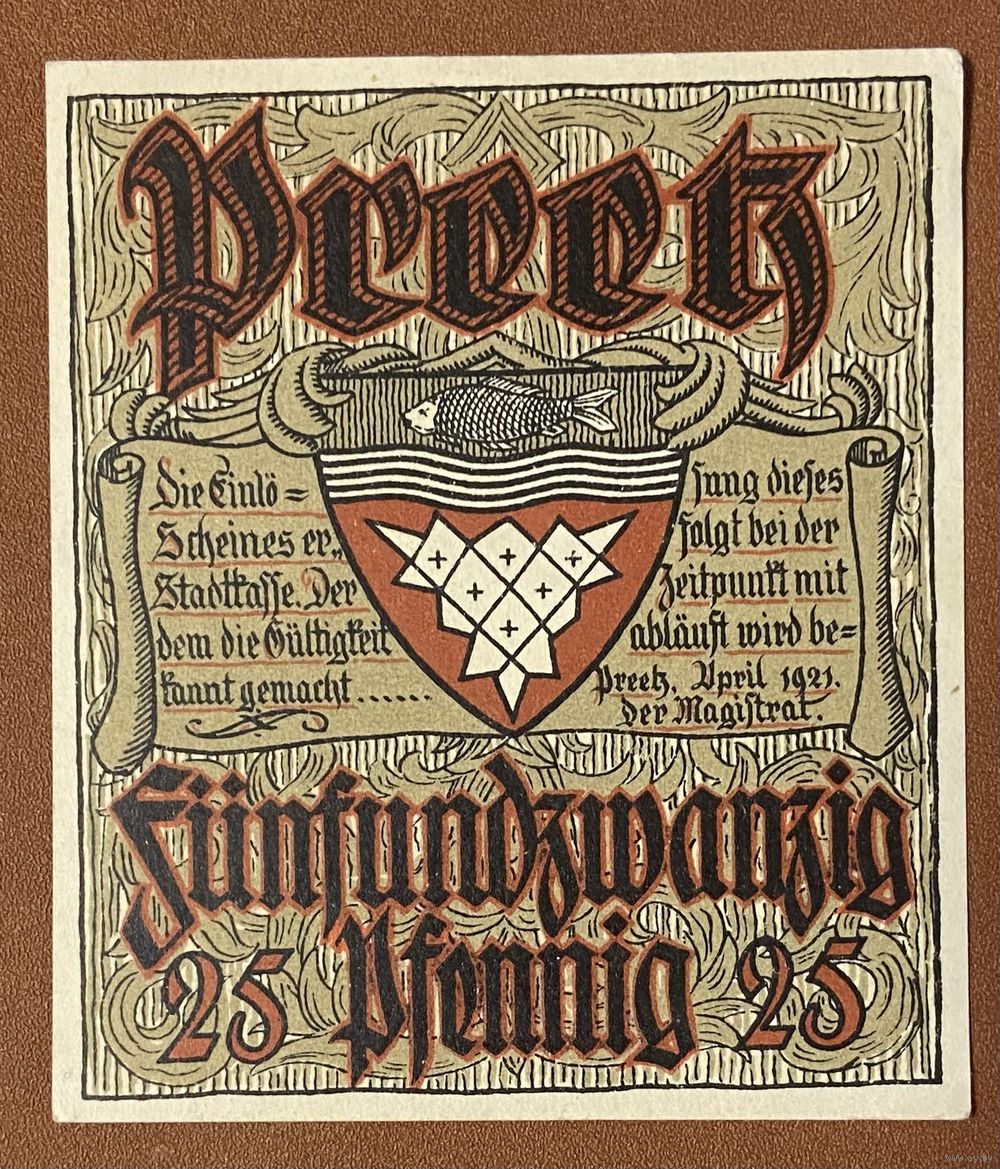 Preetz
Die Einlö= sung dieses
Scheines er„ folgt bei der
Stadtkasse. Der Zeitpunkt mit
dem die Gültigkeit abläuft wird be=
kannt gemacht ...... Preetz, April 1921.
Der Magistrat.
Fünfundzwanzig
25 Pfennig 25